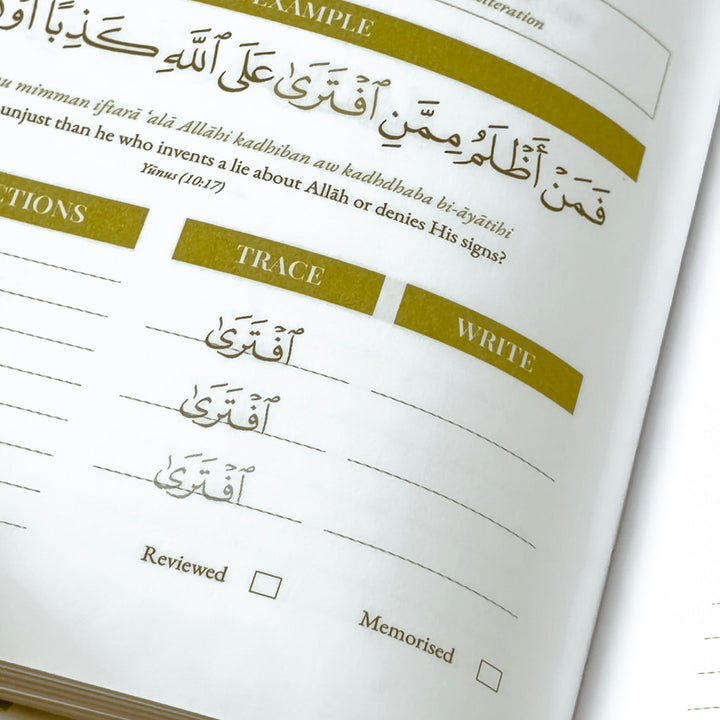 literation
EXAMPLE
فَمَنْ أَظْلَمُ مِمَّنِ ٱفْتَرَىٰ عَلَى ٱللَّهِ كَذِبًا أَوْ
mimman iftarā ʿalā Allāhi kadhiban aw kadhdhaba bi-āyātihi
unjust than he who invents a lie about Allāh or denies His signs?
Yūnus (10:17)
CTIONS
TRACE
WRITE
ٱفْتَرَىٰ
ٱفْتَرَىٰ
ٱفْتَرَىٰ
Reviewed
Memorised